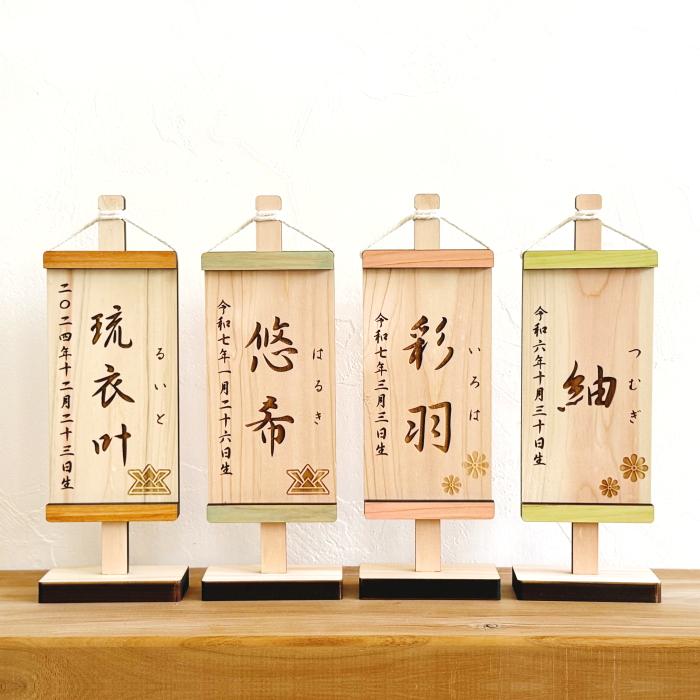 るいと
琉衣叶
二〇二四年十二月二十三日生
はるき
悠希
令和七年一月二十六日生
いろは
彩羽
令和七年三月三日生
つむぎ
紬
令和六年十月三十日生